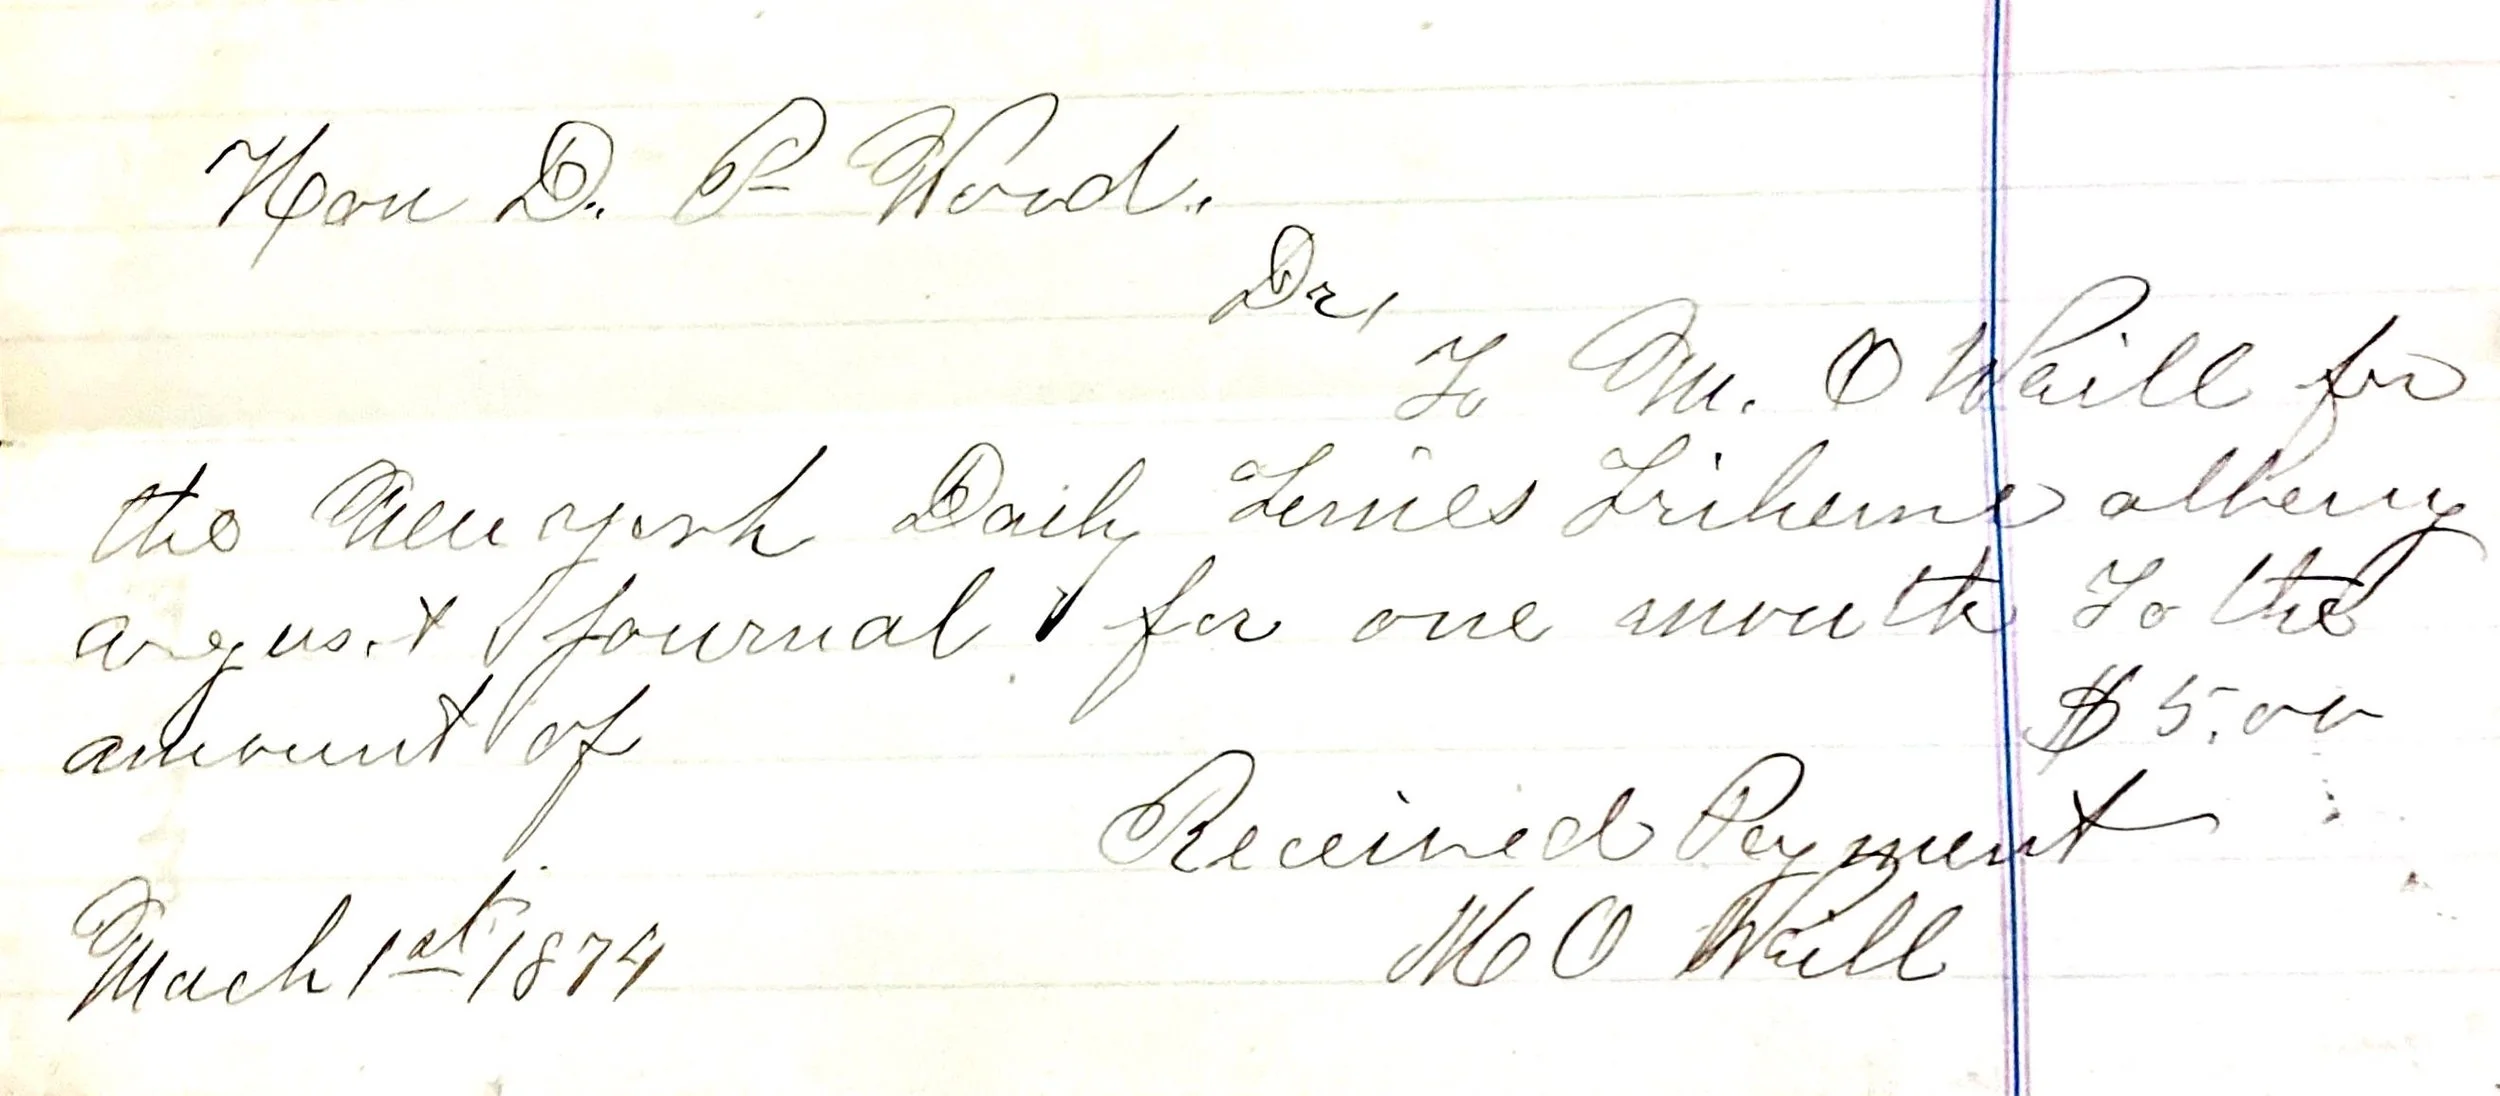 Hon D. P Wood.
Dr,
To M. O Waill for
the New york Daily Times Tribune albany
argus. & Journal for one month To the
amount of $5.00
Received Payment
Mach 1st 1874 M O Waill